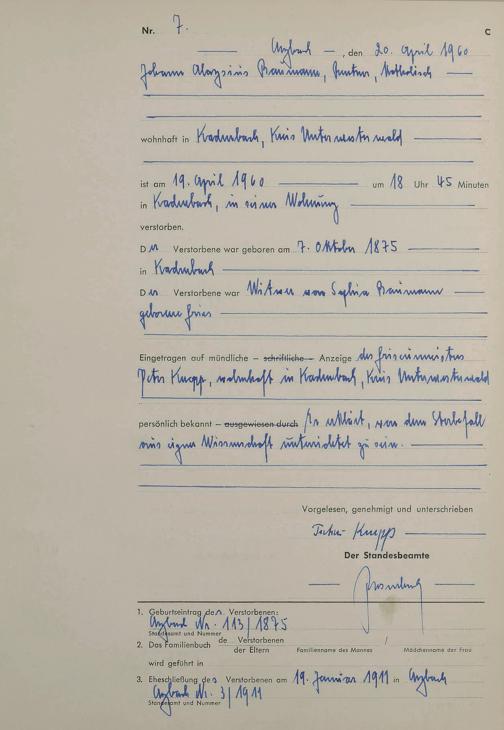 Nr. 7. C
Arzbach, den 20. April 1960
Johann Aloysius Baumann, Rentner, Katholisch
wohnhaft in Kadenbach, Kreis Unterwesterwald
ist am 19. April 1960 um 18 Uhr 45 Minuten
in Kadenbach, in seiner Wohnung
verstorben.
Der Verstorbene war geboren am 7. Oktober 1875
in Kadenbach
Der Verstorbene war Witwer von Sophia Baumann
geborene
Eingetragen auf mündliche – schriftliche – Anzeige des Friseurmeisters
Peter Knopp, wohnhaft in Kadenbach, Kreis Unterwesterwald
persönlich bekannt – ausgewiesen durch Er erklärt, von dem Sterbefall
aus eigner Wissenschaft unterrichtet zu sein.
Vorgelesen, genehmigt und unterschrieben
Peter Knopp
Der Standesbeamte
1. Geburtseintrag des Verstorbenen:
Arzbach Nr. 113/1875
Standesamt und Nummer
2. Das Familienbuch de Verstorbenen
der Eltern
/
Familienname des Mannes Mädchenname der Frau
wird geführt in
3. Eheschließung des Verstorbenen am 19. Januar 1911 in Arzbach
Arzbach Nr. 3/1911
Standesamt und Nummer